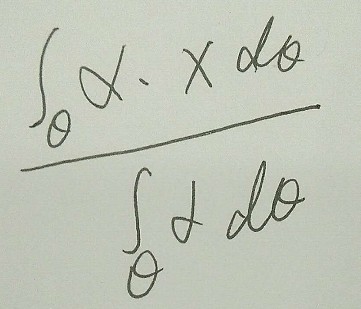 ∫_θ α · x dθ
∫_θ α dθ